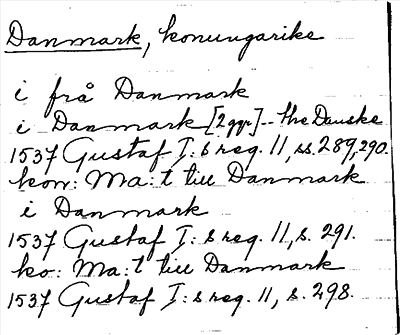 Danmark, konungarike
i frå Danmark
i Danmark [2 ggr] -- the Danske
1537 Gustaf I:s reg. 11, ss. 289, 290.
kon: Ma:t till Danmark
i Danmark
1537 Gustaf I:s reg. 11, s. 291.
ko: Ma:t till Danmark
1537 Gustaf I:s reg. 11, s. 298.